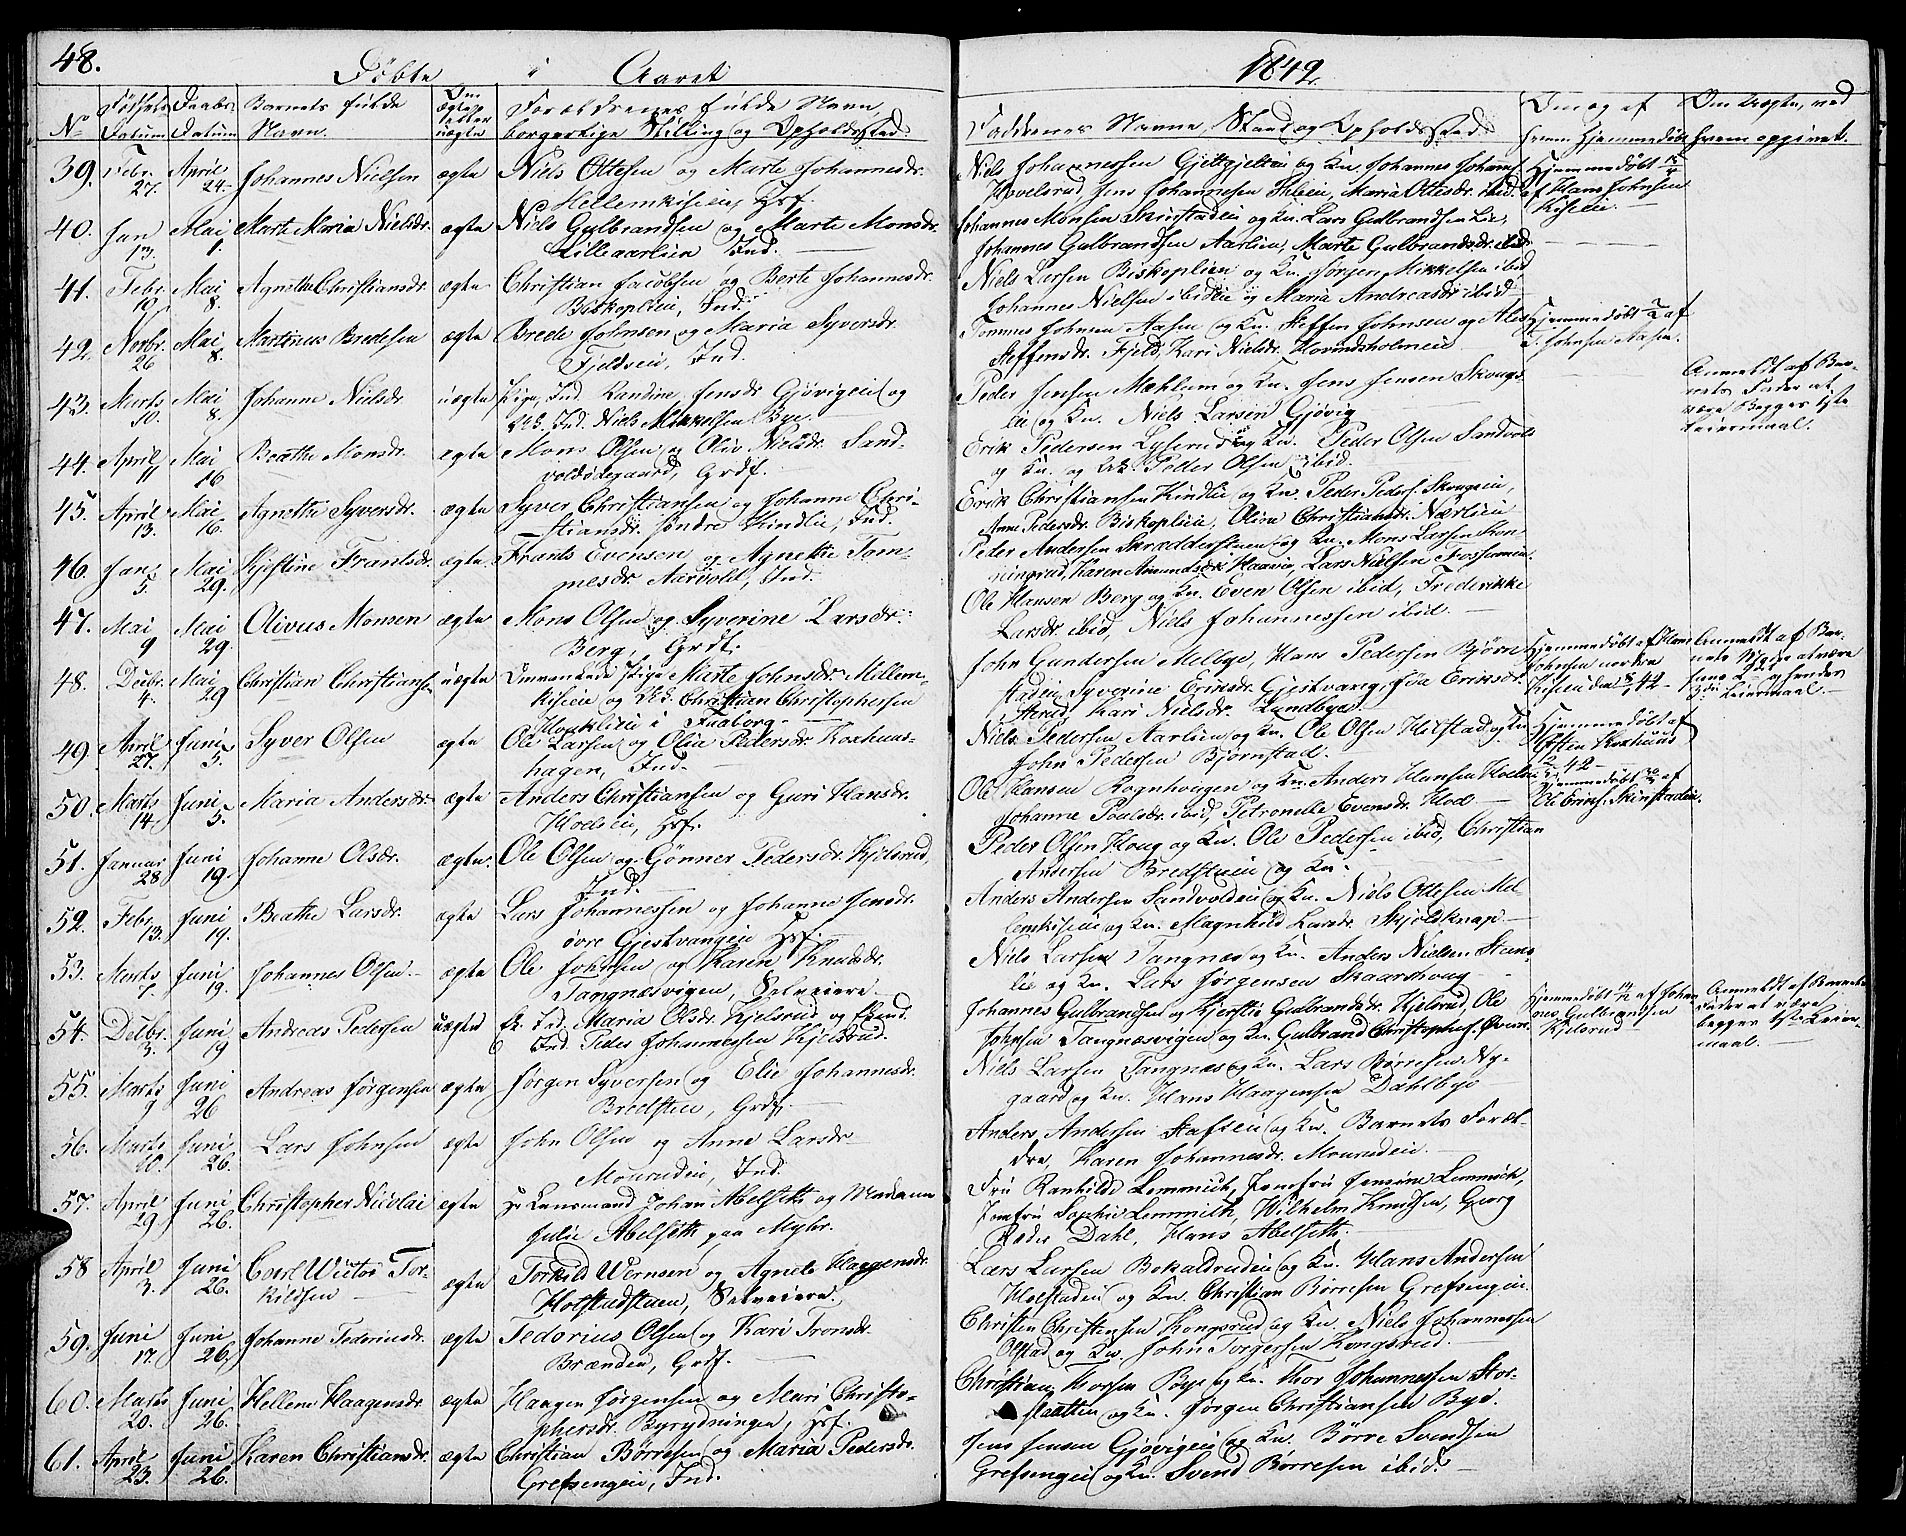 48.
Døbte i Aaret
1842.
No
Fødsels Datum
Daabs Datum
Barnets fulde Navn.
Om ægte eller uægte
Forældrenes fulde Navn, borgerlige Stilling og Opholdssted.
Faddernes Navne, Stand og Opholdssted.
Om og af hvem Hjemmedøbt
Om uægte, ved hvem opgivet.
39. Febr. 27. April 24. Johannes Nielsen ægte Niels Ottesen og Marte Johannesdr.
Hellemkiseie, Hsf.
Niels Johannessen og Kn. Johannes Johannes.
Hovelsrud, Jens Johannesen Maria Ottesdr. ibid.
Hjemmedøbt
af Hans Johnsen
Kiseie.
40. Jan 13. Mai 1. Marte Maria Nielsdr. ægte Niels Gulbrandsen og Marte Monsdr.
Lilleaarlien Ind.
Johannes Monsen Skurstadeie og Kn. Lars Gulbrandsen Lie,
Johannes Gulbrandsen Aarlien, Marte Gulbrandsdr. ibid
41. Febr. 10. Mai 8. Agnethe Christiansdr. ægte Christian Jacobsen og Berte Johannesdr.
Biskoplien, Ind.
Niels Larsen Biskoplien og Kn. Jørgen Mikkelsen ibid
Johannes Nielsen ibid og Maria Andreasdr ibid
42. Novbr. 26 Mai 8. Martinus Bredesen ægte Brede Johnsen og Maria Syversdr.
Fjeldseie, Ind.
Tommes Johnsen Aasen og Kn. Steffen Johnsen og Ales
Steffensdr. Fjeld, Kari Nielsdr. Hovindsholmeie
Hjemmedøbt af
Johnsen Aasen.
43. Marts 10. Mai 8. Johanne Nielsdr. uægte Pige, Ind. Randine Jensdr Gjøvigeie og
Ind. Niels Mikkelsen Bye.
Peder Jensen Mæhlum og Kn. Jens Jensen Skougs
eie og Kn. Niels Larsen Gjøvig
Anmeldt af Bar-
nets Fader at
være Begges 1ste
Leiermaal.
44. April 11 Mai 16 Beathe Monsdr. ægte Mons Olsen og Oliv Nielsdr. Sand-
voldødegaard, Grdf.
Erik Pedersen Lyserud og Kn. Peder Olsen Sandvold
og Kn. og Peder Olsen ibid.
45. April 13. Mai 16. Agnethe Syversdr. ægte Syver Christiansen og Johanne Chri-
stiansdr. søndre Kindlie, Ind.
Erik Christiansen Kindlie og Kn. Peder Peders. Skougeie,
Anne Pedersdr. Biskoplien, Oline Christiansdr. Nærlien
46. Jan. 5. Mai 29. Kjestine Frantsdr. ægte Frants Evensen og Agnethe Tom-
mesdr Aarvold, Ind.
Peder Andersen Skrædderstuen og Kn. Mons Larsen
Karen Amundsdr. Haavie, Lars Nielsen
47. Mai 9 Mai 29. Olivus Monsen ægte Mons Olsen og Syverine Larsdr.
Berg, Grdf.
Ole Hansen Berg og Kn. Even Olsen ibid, Frederikke
Larsdr. ibid, Niels Johannessen ibid.
48. Decbr. 4. Mai 29 Christian Christiansen uægte Omvankede Pige Marte Johnsdr. Mellem-
kiseie og Christian Christophersen
i Faaberg
John Gundersen Melbye, Hans Pedersen Bjørn-
stadeie, Syverine Eriksdr. Gjestvang, Eriksdr.
Kari Nielsdr. Lundbye.
Hjemmedøbt af Hans
Johnsen nordre
Kise 42
Anmeldt af Bar-
nets
Leiermaal.
49. April 27. Juni 5. Syver Olsen ægte Ole Larsen og Olia Pedersdr. Koxhuus-
hagen, Ind.
Niels Pedersen Aarlien og Kn. Ole Olsen og Kn.
John Pedersen Bjørnstad.
Hjemmedøbt af
Koxhuus
42
50. Marts 14. Juni 5. Maria Andersdr. ægte Anders Christiansen og Guri Hansdr.
Hoelseie, Hsf.
Ole Hansen Rognhougen og Kn. Anders Hansen
Johanne Poulsdr. ibid, Petronelle Evensdr. Hoel
Hjemmedøbt af
Ole Eriks. Skurstadeie.
51. Januar 28 Juni 19. Johanne Olsdr. ægte Ole Olsen og Gønner Pedersdr. Kjelsrud,
Ind.
Peder Olsen Houg og Kn. Ole Pedersen ibid, Christian
Andersen Bredstuen og Kn.
52. Febr. 13. Juni 19. Beathe Larsdr. ægte Lars Johannessen og Johanne Jensdr.
øvre Gjestvangeie Hsf.
Anders Andersen Sandvoldeie og Kn. Niels Ottesen Hel-
lemkiseie og Kn. Magnhild Larsdr. Skjoldknap
53. Marts 7. Juni 19. Johannes Olsen ægte Ole Johnsen og Karen Knudsdr.
Tangnæsvigen, Selveiere.
Niels Larsen Tangnæs og Kn. Anders Nielsen
lie og Kn. Lars Jørgensen Skaarshoug
54. Decbr. 3. Juni 19 Andreas Pedersen uægte Ind. Maria Olsdr. Kjelsrud og
Ind. Peder Johannessen Kjelsrud.
Johannes Gulbrandsen og Kjerstie Gulbrandsdr. Kjelsrud, Ole
Johnsen Tangnæsvigen og Kn. Gulbrand Christophers.
Hjemmedøbt af Johan-
nes Gulbrandsen
Kjelsrud
Anmeldt af Barnets
Fader at være
begges 1ste Leier-
maal.
55. Marts 9 Juni 26 Andreas Jørgensen ægte Jørgen Syversen og Elie Johannesdr.
Bredstuen, Grdf.
Niels Larsen Tangnæs og Kn. Lars Børresen Ny-
gaard og Kn. Hans Haagensen Dahlbye
56. Marts 10. Juni 26. Lars Johnsen ægte John Olsen og Anne Larsdr
Mourudeie, Ind.
Anders Andersen og Kn. Barnets Foræl-
dre, Karen Johannesdr. Mourudeie.
57. April 29 Juni 26. Christopher Nicolai ægte Hr Lensmand Johan Abelseth og Madame
Julie Abelseth paa Myhr.
Fru Ranhilde Lemmich, Jomfru Jensine Lemmich,
Jomfru Sophie Lemmich, Wilhelm Knudsen, Georg
Dahl, Hans Abelseth.
58 April 3. Juni 26. Carl Wictor Tor-
kildsen ægte Torkild Wernsen og Agnete Haagensdr.
Holstadstuen, Selveiere.
Lars Larsen Bokalsrudeie og Kn. Hans Andersen
Holstadeie og Kn. Christian Børresen Grefsengeie.
59. Juni 17. Juni 26. Johanne Tedoriusdr. ægte Tedorius Olsen og Kari Tronsdr.
Brænden, Grdf.
Christen Christensen Kongsrud og Kn. Niels Johannessen
Olstad og Kn. John Torgersen Kongsrud.
60. Marts 20. Juni 26. Hellene Haagensdr. ægte Haagen Jørgensen og Mari Christo-
phersdr. Byrydningen, Hsf.
Christian Thorsen Bye og Kn. Thor Johannessen Stor-
slaatten og Kn. Jørgen Christiansen Bye.
61. April 23. Juni 26. Karen Christiansdr. ægte Christian Børresen og Maria Pedersdr.
Grefsengeie, Ind.
Jens Jensen Gjøvigeie og Kn. Børre Svendsen
Grefsengeie og Kn. Svend Børresen ibid.